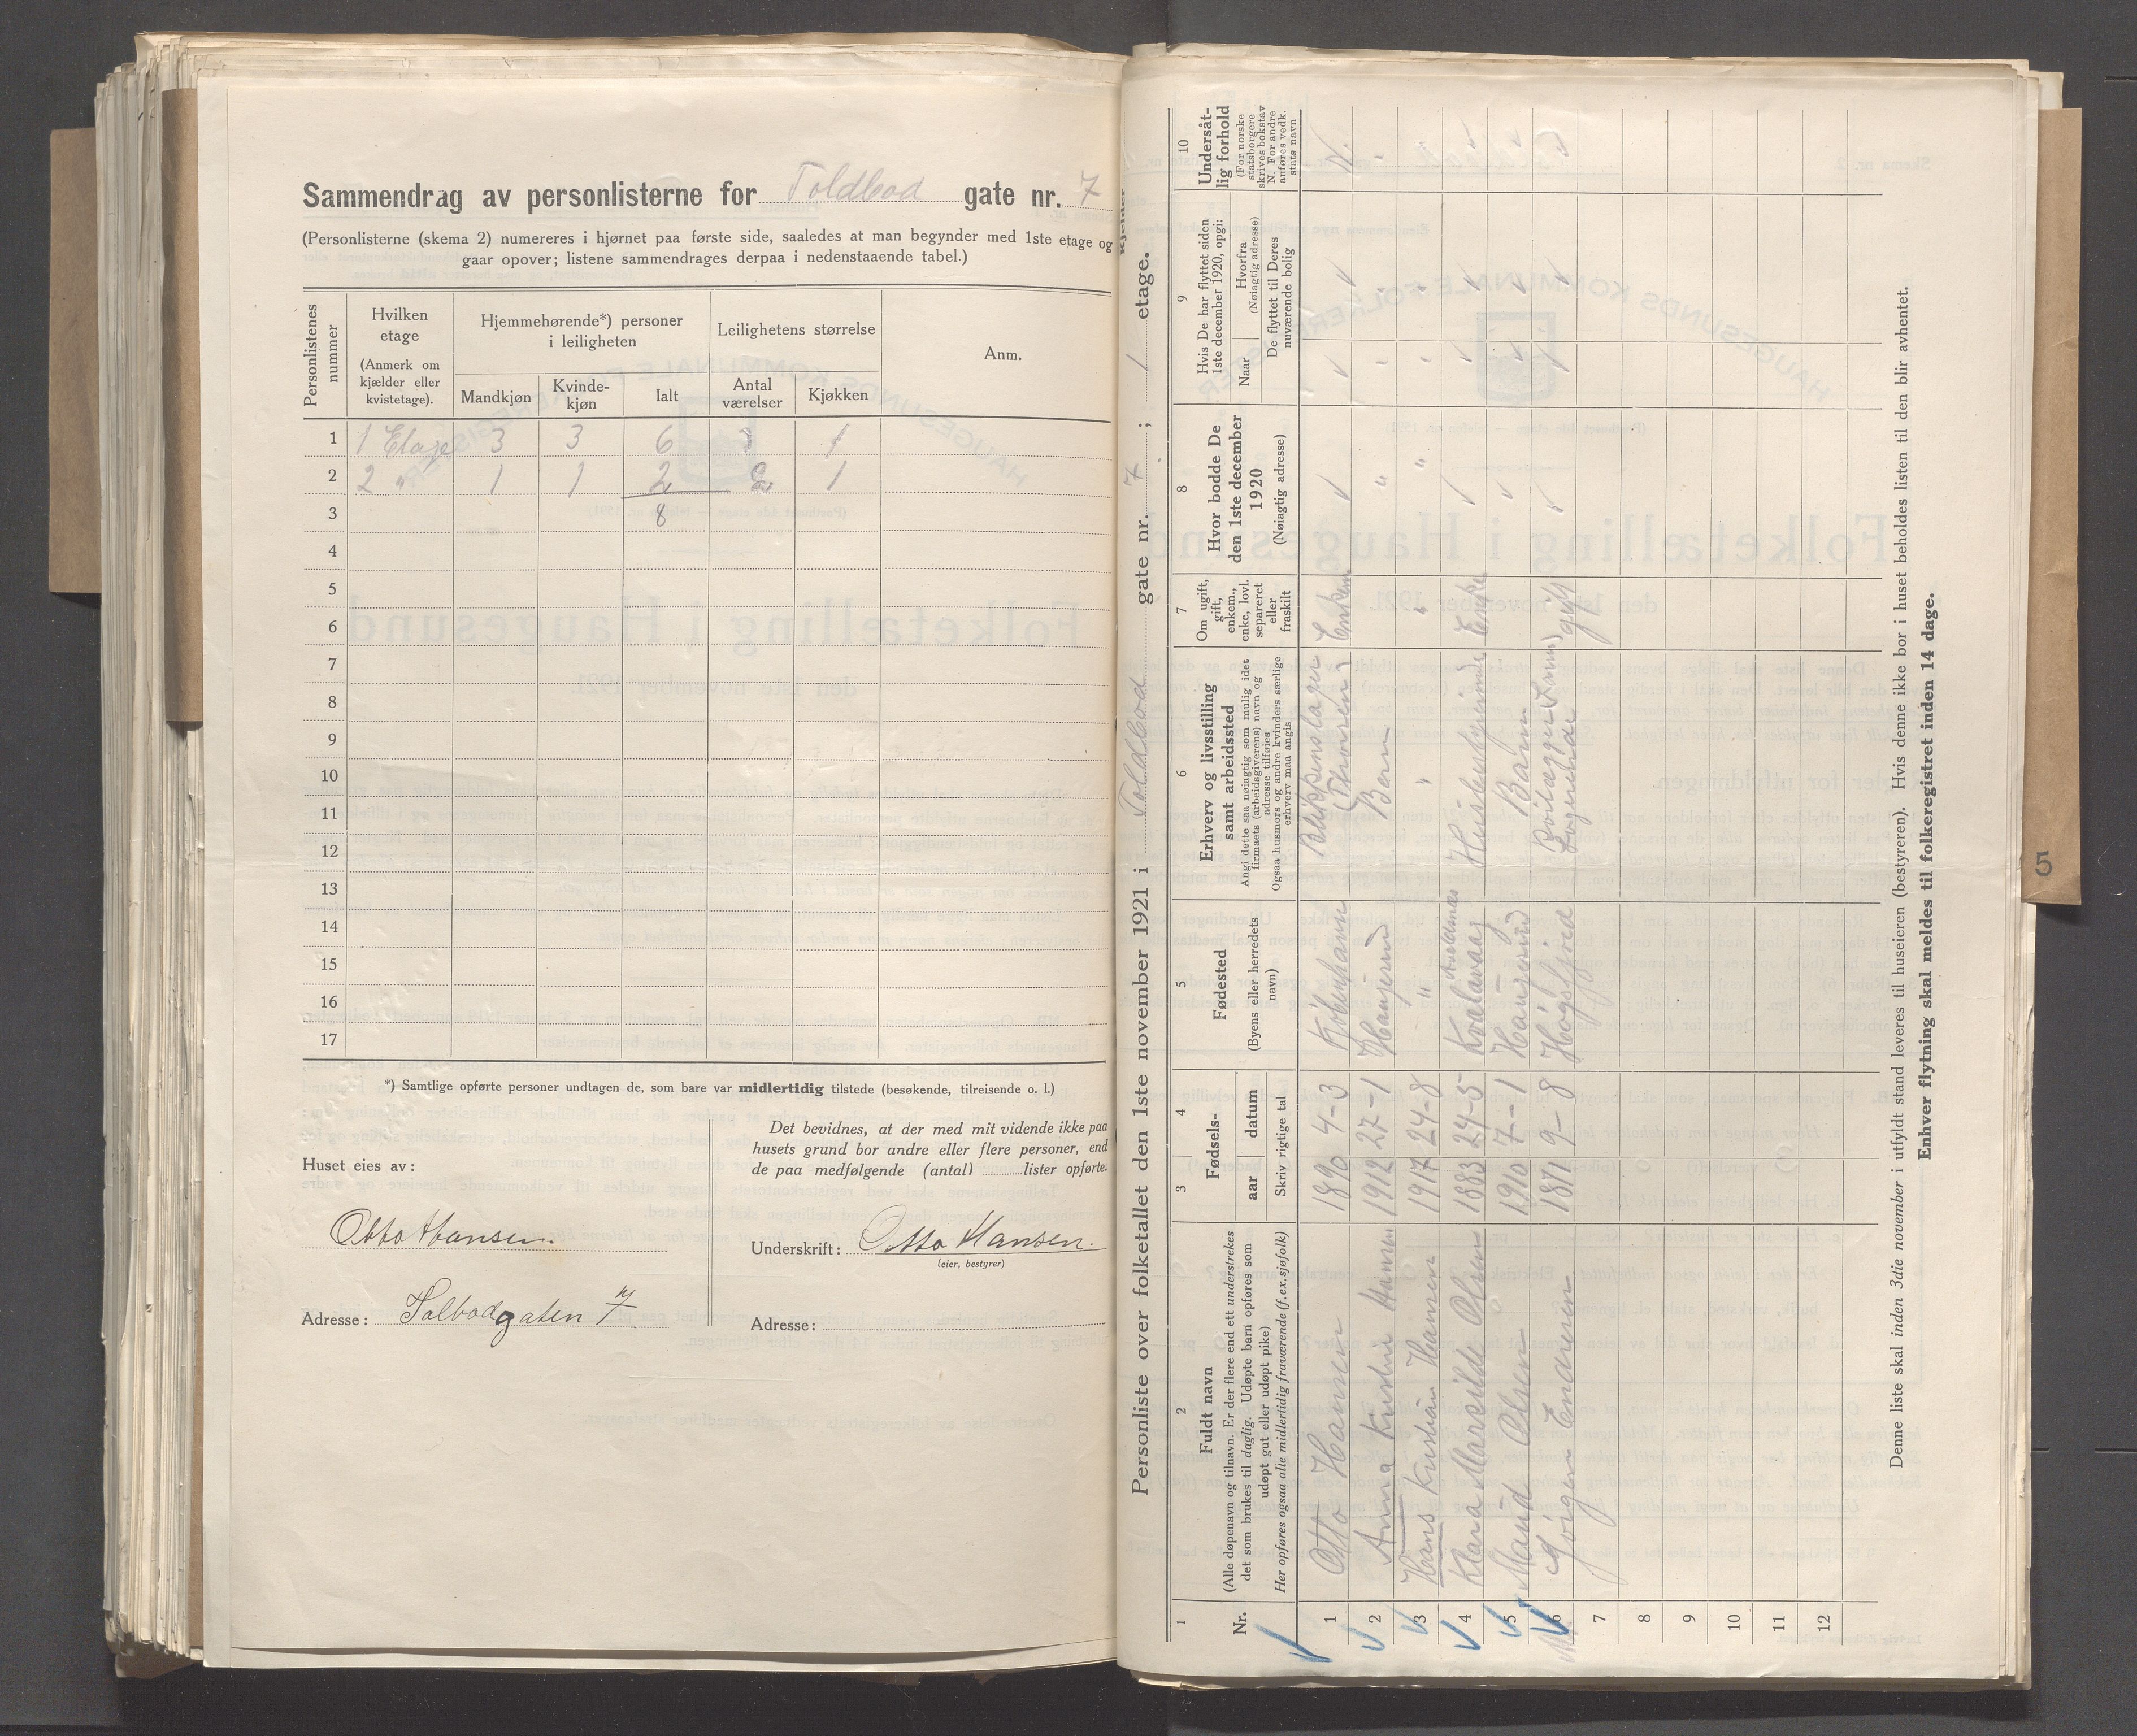 Sammendrag av personlisterne for Toldbod gate nr. 7
(Personlisterne (skema 2) numereres i hjørnet paa første side, saaledes at man begynder med 1ste etage og
gaar opover; listene sammendrages derpaa i nedenstaaende tabel.)
Personlistenes nummer | Hvilken etage (Anmerk om kjælder eller kvistetage). | Hjemmehørende*) personer i leiligheten | Leilighetens størrelse | Anm.
Mandkjøn | Kvindekjøn | Ialt | Antal værelser | Kjøkken
1 1 Etage 3 3 6 1
2 2 " 1 1 2 2 1
3 8
4
5
6
7
8
9
10
11
12
13
14
15
16
17
*) Samtlige opførte personer undtagen de, som bare var midlertidig tilstede (besøkende, tilreisende o. l.)
Huset eies av:
Otto Hansen.
Adresse: Tolbodgaten 7
Det bevidnes, at der med mit vidende ikke paa
husets grund bor andre eller flere personer, end
de paa medfølgende (antal) lister opførte.
Underskrift: Otto Hansen.
(eier, bestyrer)
Adresse:
Personliste over folketallet den 1ste november 1921 i Toldbod gate nr. 7; 1 etage.
1 Nr.
2 Fuldt navn
(Alle døpenavn og tilnavn. Er der flere end ett understrekes
det som brukes til daglig. Udøpte barn opføres som
udøpt gut eller udøpt pike)
Her opføres ogsaa alle midlertidig fraværende (f.ex. sjøfolk)
3 4 Fødsels-
aar datum
Skriv rigtige tal
5 Fødested
(Byens eller herredets navn)
6 Erhverv og livsstilling
samt arbeidssted
Angi dette saa nøiagtig som mulig idet
firmaets (arbeidsgiverens) navn og
adresse tilføies
Ogsaa husmors og andre kvinders særlige
erhverv maa angis
7 Om ugift, gift, enkem., enke, lovl. separeret eller fraskilt
8 Hvor bodde De
den 1ste december
1920
(Nøiagtig adresse)
9 Hvis De har flyttet siden
1ste december 1920, opgi:
Naar Hvorfra
(Nøiagtig adresse)
De flyttet til Deres
nuværende bolig
10 Undersåt-
lig forhold
(For norske
statsborgere
skrives bokstav
N. For andre
anføres vedk.
stats navn
1 Otto Hansen 1890 4-3 Kobenhavn Blikkenslager (Thorsen) Enkem N.
2 Anna Kristine Hansen 1912 27-1 Haugesund Barn " " " "
3 Hans Kristian Hansen 1917 24-8 " " " " " " "
4 Klara Marselide Olsen 1883 24-5 Kvalavaag Husbestyrerinde Enke "
5 Maud Olsen 1910 7-1 Haugesund Barn "
6 Jørgen Endresen 1871 9-8 Høgsfjord gift "
7
8
9
10
11
12
Denne liste skal inden 3die november i utfyldt stand leveres til huseieren (bestyreren). Hvis denne ikke bor i huset beholdes listen til den blir avhentet.
Enhver flytning skal meldes til folkeregistret inden 14 dage.
5